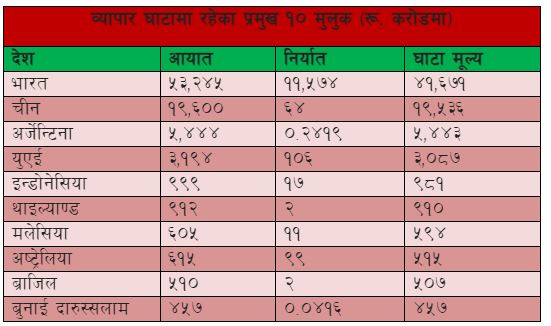 व्यापार घाटामा रहेका प्रमुख १० मुलुक (रू. करोडमा)
देश आयात निर्यात घाटा मूल्य
भारत ५३,२४५ ११,५७४ ४१,६७१
चीन १९,६०० ६४ १९,५३६
अर्जेन्टिना ५,४४४ ०.२४१९ ५,४४३
युएई ३,१९४ १०६ ३,०८७
इन्डोनेसिया ९९९ १७ ९८१
थाइल्याण्ड ९१२ २ ९१०
मलेसिया ६०५ ११ ५९४
अष्ट्रेलिया ६१५ ९९ ५१५
ब्राजिल ५१० २ ५०७
ब्रुनाई दारुस्सलाम ४५७ ०.०४१६ ४५७